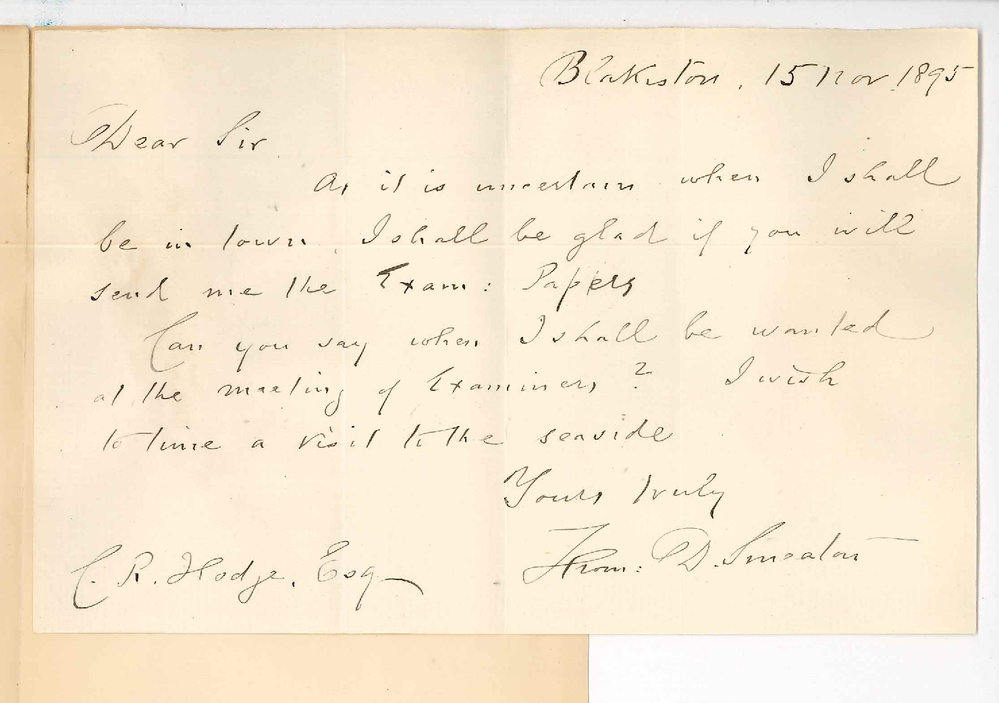 Blakiston, 15 Nov 1895
Dear Sir
As it is uncertain when I shall
be in town, I shall be glad if you will
send me the Exam: Papers
Can you say when I shall be wanted
at the meeting of Examiners? I wish
to time a visit to the seaside
Yours truly
Thom: D. Smeaton
C. R. Hodge, Esq